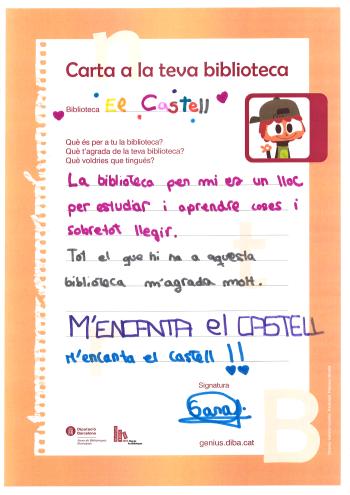 Carta a la teva biblioteca
Biblioteca El Castell
Què és per a tu la biblioteca?
Què t'agrada de la teva biblioteca?
Què voldries que tingués?
La biblioteca per mi es un lloc
per estudiar i aprendre coses i
sobretot llegir.
Tot el que hi ha a aquesta
biblioteca m'agrada molt.
M'ENCANTA el CASTELL
M'encanta el castell !!
Signatura
Sara
Diputació
Barcelona
genius.diba.cat